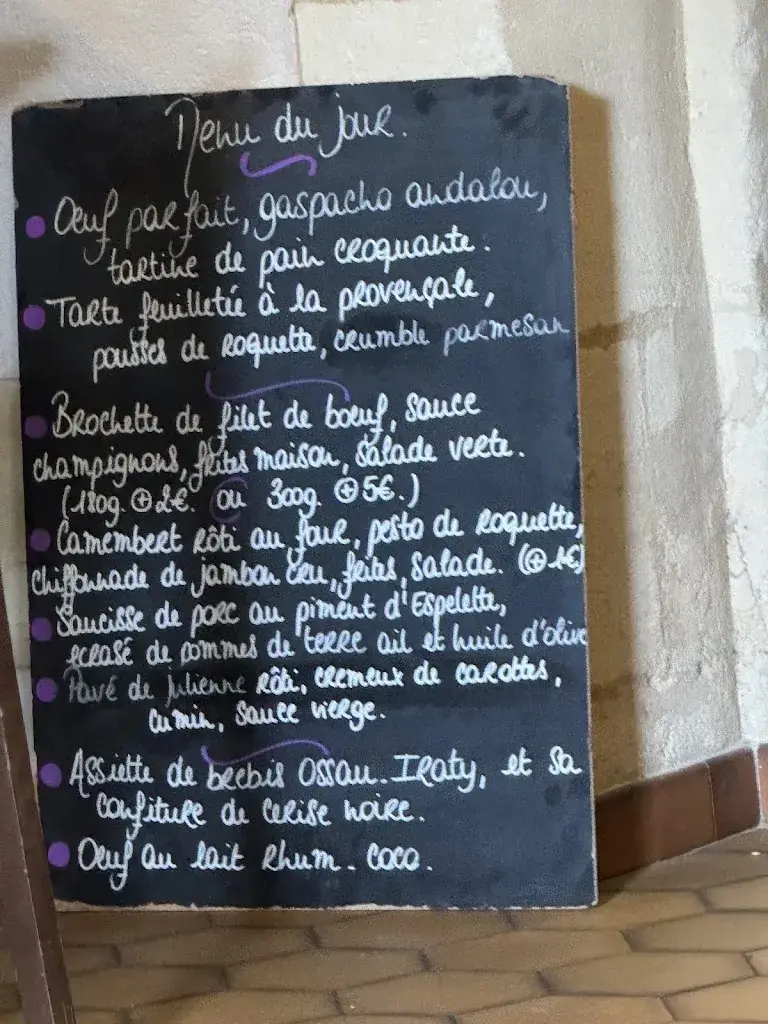 Menu du jour.
Oeuf parfait, gaspacho andalou,
tartine de pain croquante.
Tarte feuilletée à la provençale,
pousses de roquette, crumble parmesan
Brochette de filet de boeuf, sauce
champignons, frites maison, salade verte.
(180g. ⊕ 2€. ou 300g. ⊕ 5€.)
Camembert rôti au four, pesto de roquette,
chiffonnade de jambon cru, frites, salade. (⊕ 1€)
Saucisse de porc au piment d'Espelette,
écrasé de pommes de terre ail et huile d'olive
Pavé de julienne rôti, crémeux de carottes,
cumin, sauce vierge.
Assiette de brebis Ossau-Iraty, et sa
confiture de cerise noire.
Oeuf au lait Rhum-coco.